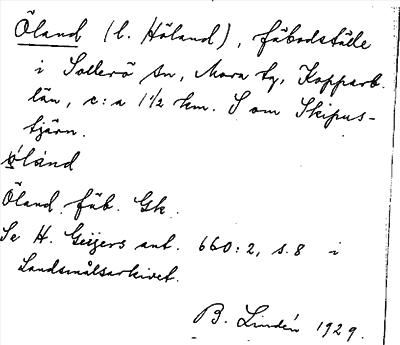 Öland (l. Höland), fäbodställe
i Sollerö sn, Mora tg, Kopparb.
län, c:a 1 1/2 km. S om Skipus-
tjärn.
öländ
Öland fäb. Gk.
Se H. Geijers ant. 660:2, s. 8 i
Landsmålsarkivet.
B. Lindén 1929.